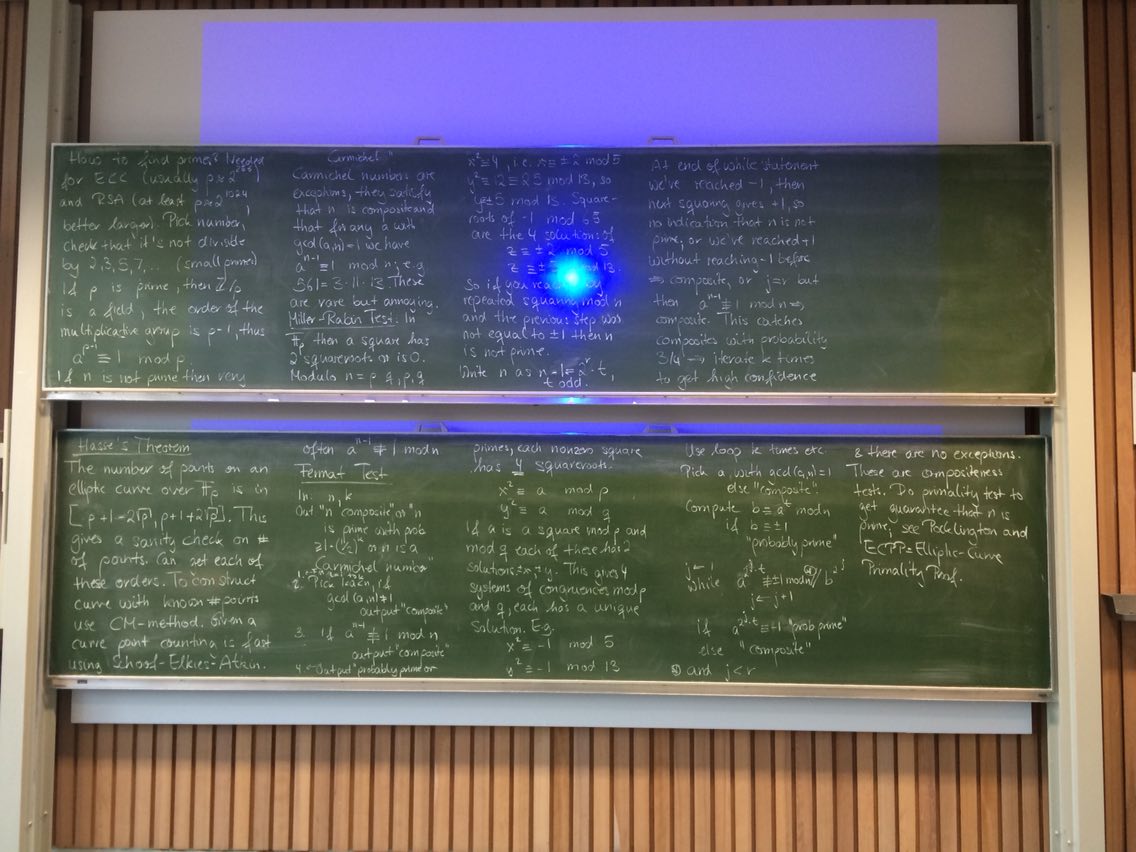 Hasse's Theorem
The number of points on an
elliptic curve over 𝔽p is in
[p+1-2√p, p+1+2√p]. This
gives a sanity check on #
of points. Can get each of
these orders. To construct
curve with known # points
use CM-method. Given a
curve point counting is fast
using Schoof-Elkies-Atkin.
How to find primes? Needed
for ECC (usually p≈2²⁵⁶)
and RSA (at least p≈2¹⁰²⁴,
better larger). Pick number,
check that it's not divisible
by 2,3,5,7,.. (small primes)
If p is prime, then ℤ/p
is a field, the order of the
multiplicative group is p-1, thus
aᵖ⁻¹ ≡ 1 mod p.
If n is not prime then very
often aⁿ⁻¹ ≢ 1 mod n
Fermat Test
In: n, k
Out "n composite" or "n
is prime with prob
≥1-(1/2)ᵏ or n is a
Carmichel number"
2. Pick 1<a<n, if
gcd(a,n)≠1
output "composite"
3. if aⁿ⁻¹ ≢ 1 mod n
output "composite"
4. Output "probably prime or
Carmichel"
Carmichel numbers are
exceptions, they satisfy
that n is composite and
that for any a with
gcd(a,n)=1 we have
aⁿ⁻¹ ≡ 1 mod n; e.g
561=3·11·17. These
are rare but annoying.
Miller-Rabin Test: In
𝔽p then a square has
2 squareroots or is 0.
Modulo n=p·q, p,q
primes, each nonzero square
has 4 squareroots:
x² ≡ a mod p
y² ≡ a mod q
If a is a square mod p and
mod q each of these has 2
solutions ±x, ±y. This gives 4
systems of congruences mod p
and q, each has a unique
Solution. E.g.
x² ≡ -1 mod 5
y² ≡ -1 mod 13
x²≡4, i.e. x≡±2 mod 5
y²≡12≡25 mod 13, so
y≡±5 mod 13. Square-
roots of -1 mod 65
are the 4 solutions of
z ≡ ±2 mod 5
z ≡ ±5 mod 13.
So if you reach 1 by
repeated squaring mod n
and the previous step was
not equal to ±1 then n
is not prime.
Write n as n-1=2ʳ·t,
t odd.
Use loop k times etc
Pick a, with gcd(a,n)=1
else "composite".
Compute b≡aᵗ mod n
if b≡±1
"probably prime"
j←1
while a^(2ʲ·t) ≢ ±1 mod n
j←j+1
if a^(2ʲ·t) ≡ -1 "prob prime"
else "composite"
and j<r
At end of while statement
we've reached -1, then
next squaring gives +1, so
no indication that n is not
prime, or we've reached +1
without reaching -1 before
⇒ composite, or j=r but
then aⁿ⁻¹ ≢ 1 mod n ⇒
composite. This catches
composites with probability
3/4 → iterate k times
to get high confidence
& there are no exceptions.
These are compositeness
tests. Do primality test to
get guarantee that n is
prime, see Pocklington and
ECPP=Elliptic-Curve
Primality Proof.